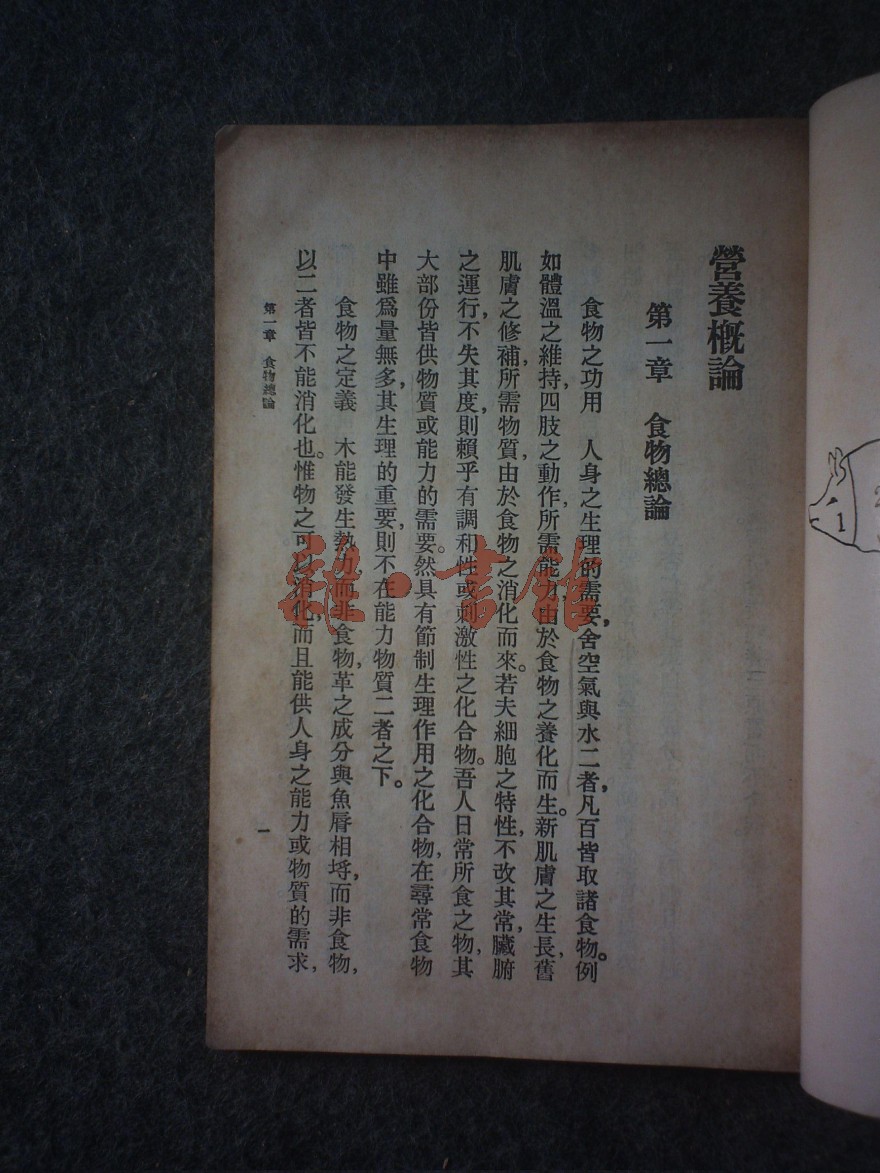 營養概論
第一章　食物總論
食物之功用　人身之生理的需要,舍空氣與水二者,凡百皆取諸食物。例
如體溫之維持,四肢之動作,所需能力,由於食物之養化而生。新肌膚之生長,舊
肌膚之修補,所需物質,由於食物之消化而來。若夫細胞之特性,不改其常,臟腑
之運行,不失其度,則賴乎有調和性或刺激性之化合物。吾人日常所食之物,其
大部份皆供物質或能力的需要。然具有節制生理作用之化合物,在尋常食物
中雖爲量無多,其生理的重要,則不在能力物質二者之下。
食物之定義　木能發生熱力,而非食物,革之成分與魚唇相埒,而非食物,
以二者皆不能消化也。惟物之可以消化,而且能供人身之能力或物質的需求,
第一章　食物總論
一
雜·書館
1